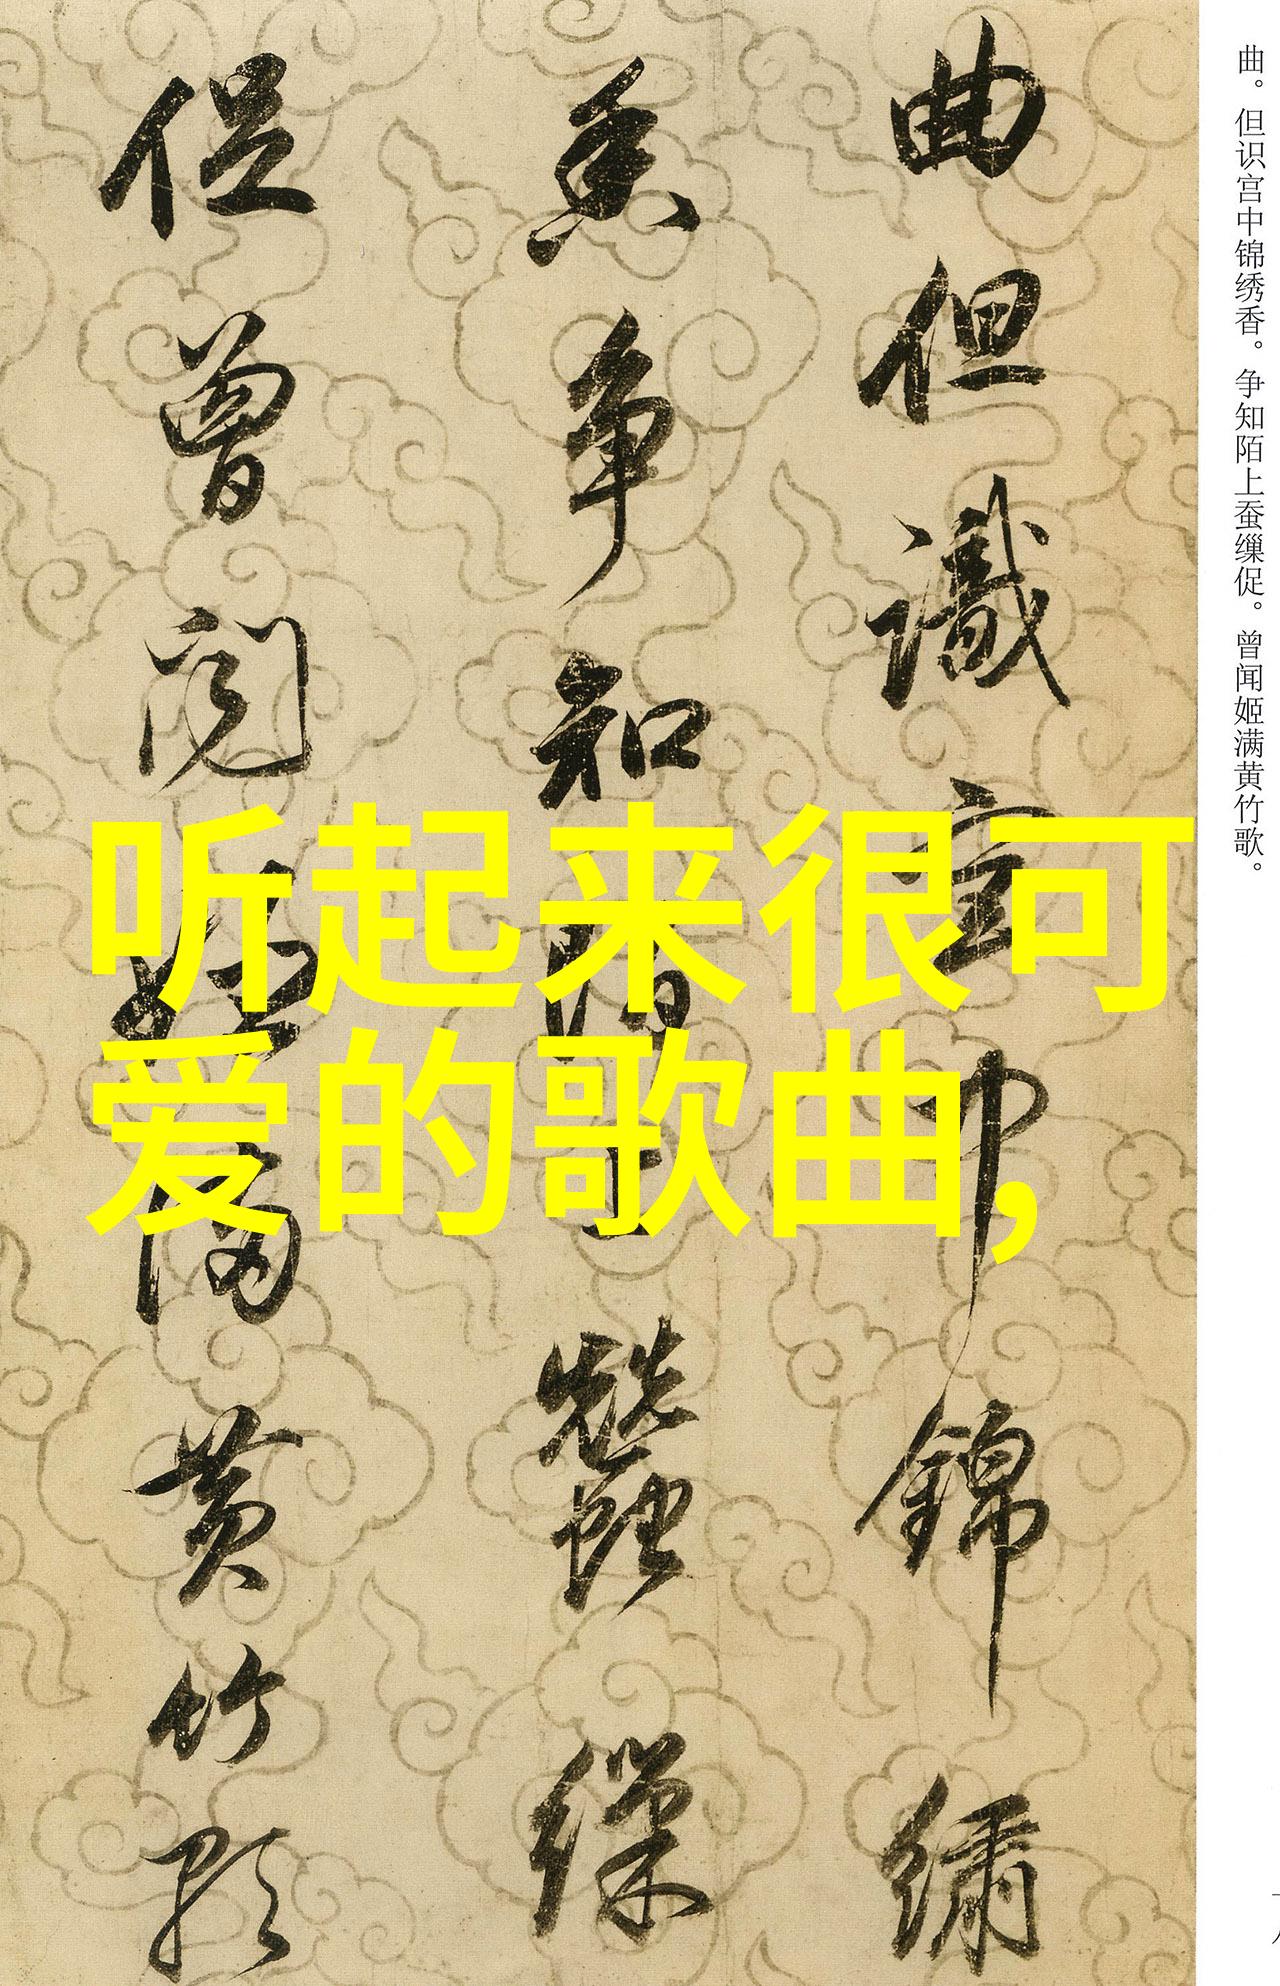 曲但識宮中錦繡
香争知陌上蠶繰
促曾闻姬满黄竹歌
曲。但识宫中锦绣香。争知陌上蚕缫促。曾闻姬满黄竹歌。
听起来很可
爱的歌曲,